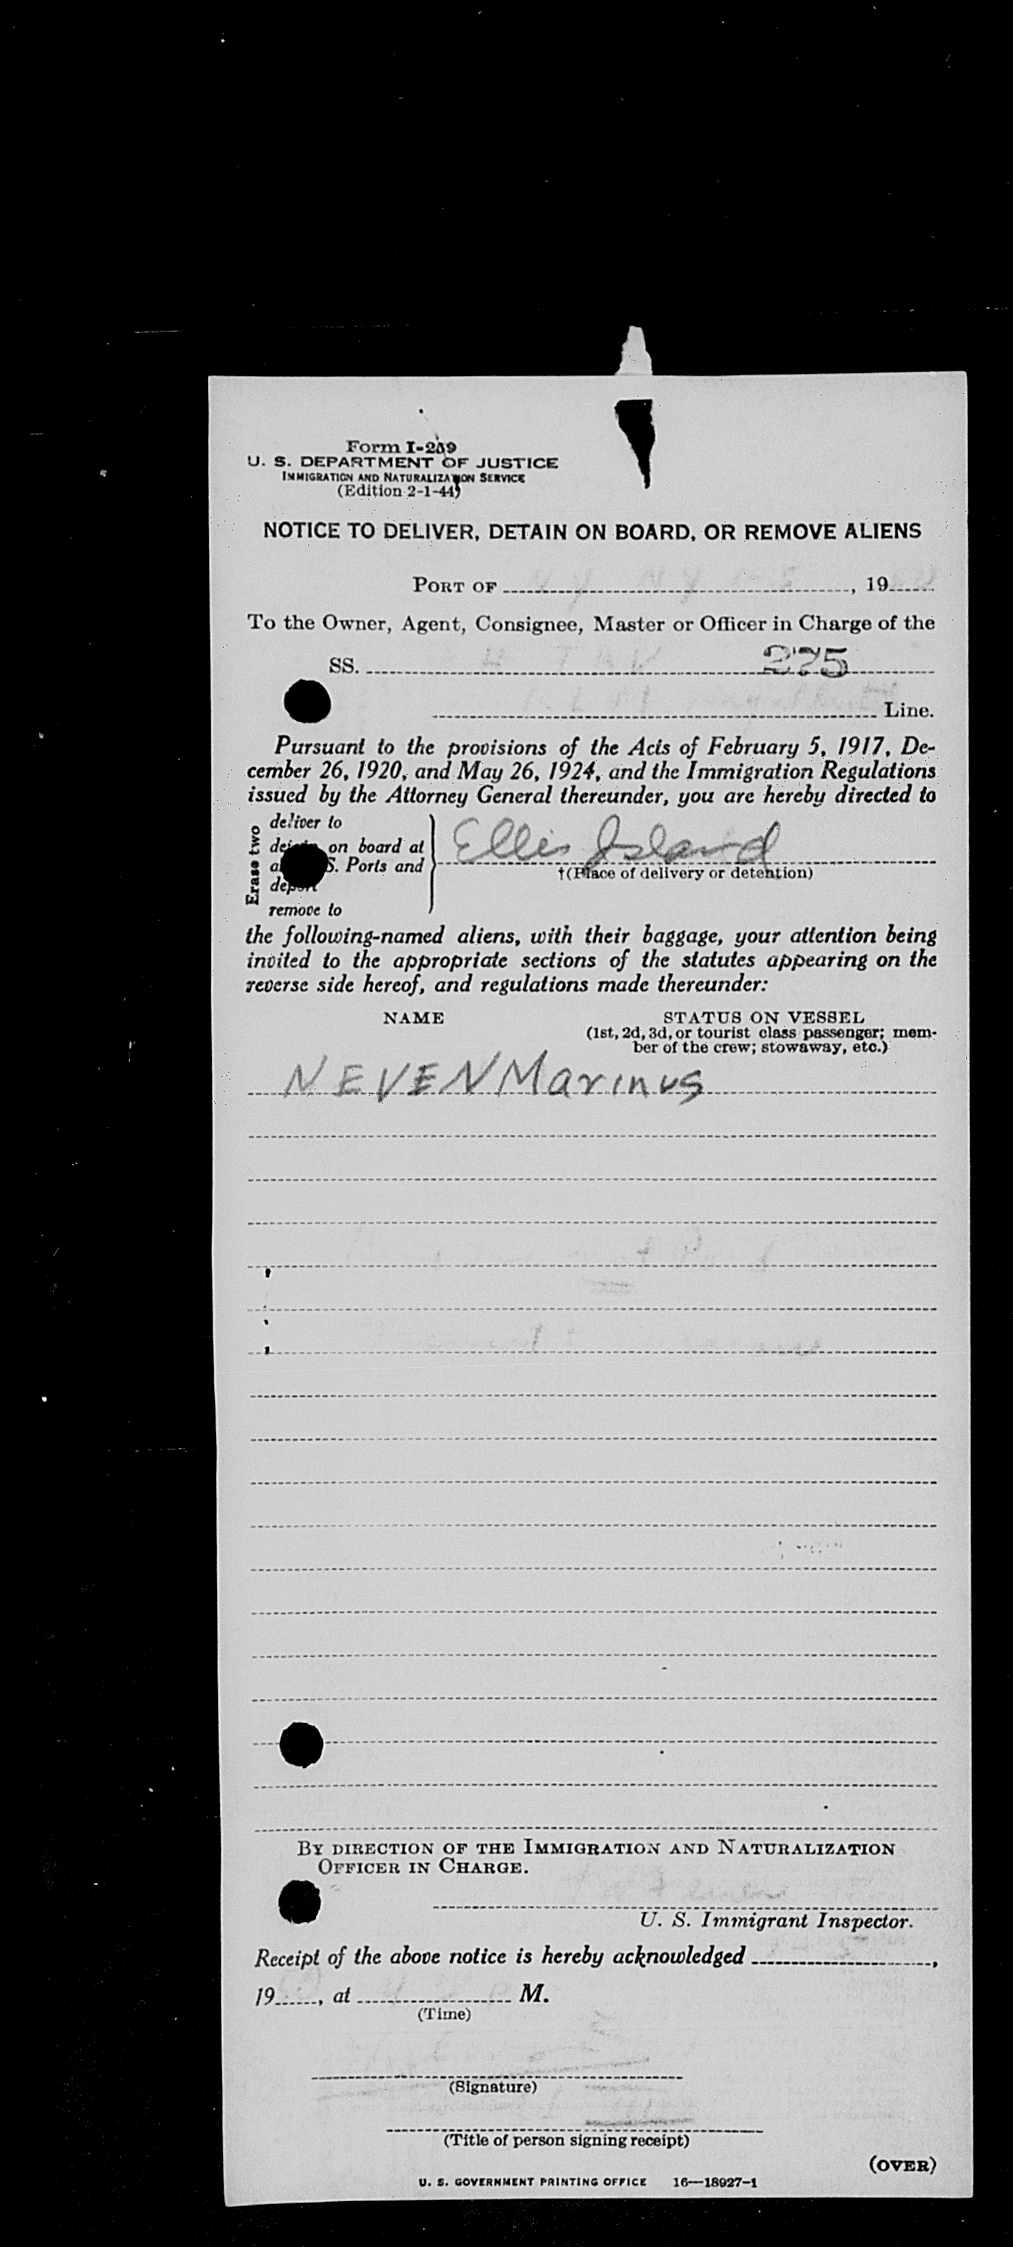 Form I-259
U. S. DEPARTMENT OF JUSTICE
IMMIGRATION AND NATURALIZATION SERVICE
(Edition 2-1-44)
NOTICE TO DELIVER, DETAIN ON BOARD, OR REMOVE ALIENS
PORT OF , 19
To the Owner, Agent, Consignee, Master or Officer in Charge of the
SS. 275
Line.
Pursuant to the provisions of the Acts of February 5, 1917, De-
cember 26, 1920, and May 26, 1924, and the Immigration Regulations
issued by the Attorney General thereunder, you are hereby directed to
Erase two
deliver to
on board at
S. Ports and
deport
remove to
Ellis Island
†(Place of delivery or detention)
the following-named aliens, with their baggage, your attention being
invited to the appropriate sections of the statutes appearing on the
reverse side hereof, and regulations made thereunder:
NAME STATUS ON VESSEL
(1st, 2d, 3d, or tourist class passenger; mem-
ber of the crew; stowaway, etc.)
NEVEN Marinus
BY DIRECTION OF THE IMMIGRATION AND NATURALIZATION
OFFICER IN CHARGE.
U. S. Immigrant Inspector.
Receipt of the above notice is hereby acknowledged ,
19 , at M.
(Time)
(Signature)
(Title of person signing receipt)
(OVER)
U. S. GOVERNMENT PRINTING OFFICE 16—18927-1